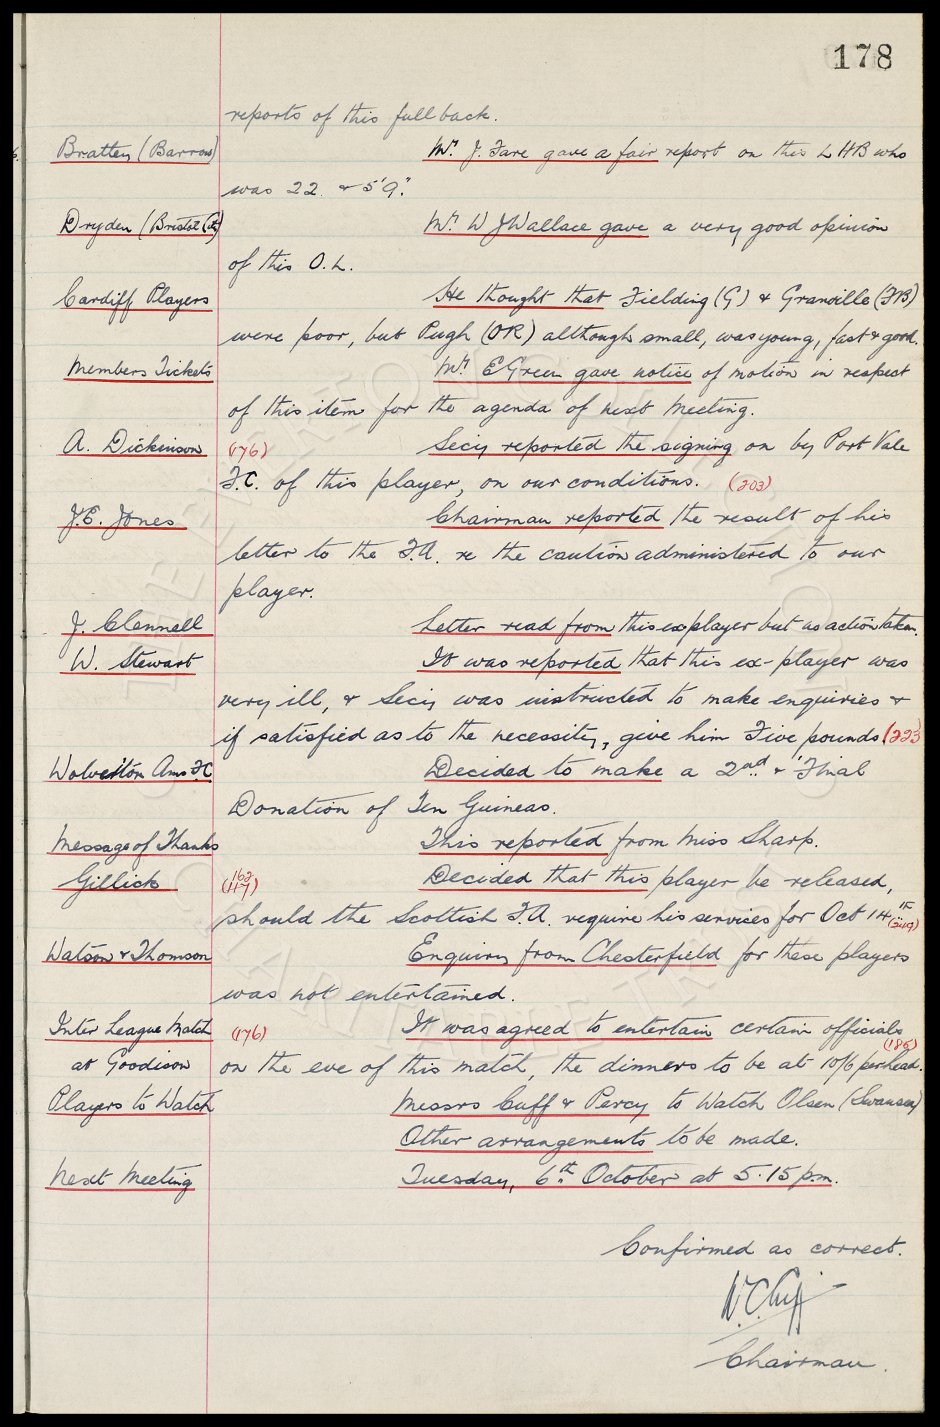 178
reports of this full back.
Bratten (Barrow) Mr. J. Fare gave a fair report on this L HB who
was 22. & 5'9".
Dryden (Bristol City) Mr. W J Wallace gave a very good opinion
of this O.L.
Cardiff Players He thought that Fielding (G) & Granville (FB)
were poor, but Pugh (OR) although small, was young, fast & good.
Members Tickets Mr. E Green gave notice of motion in respect
of this item for the agenda of next Meeting.
A. Dickinson (176) Secy reported the signing on by Port Vale
F.C. of this player, on our conditions. (203)
J.E. Jones Chairman reported the result of his
letter to the F.A. re the caution administered to our
player.
J. Clennell Letter read from this explayer but no action taken.
W. Stewart It was reported that this ex-player was
very ill, & Secy was instructed to make enquiries &
if satisfied as to the necessity, give him Five pounds (223)
Wolverton Ams F.C Decided to make a 2nd & 'Final
Donation of Ten Guineas.
Message of Thanks This reported from Miss Sharp.
Gillick (163 117) Decided that this player be released,
should the Scottish F.A. require his services for Oct 14th (249)
Watson & Thomson Enquiry from Chesterfield for these players
was not entertained.
Inter League Match (176) It was agreed to entertain certain officials
at Goodison on the eve of this match, the dinners to be at 10/6 per head. (185)
Players to Watch Messrs Cuff & Percy to Watch Olsen (Swansea)
Other arrangements to be made.
Next Meeting Tuesday, 6th October at 5.15 p.m.
Confirmed as correct.
W.C. Cuff
Chairman.